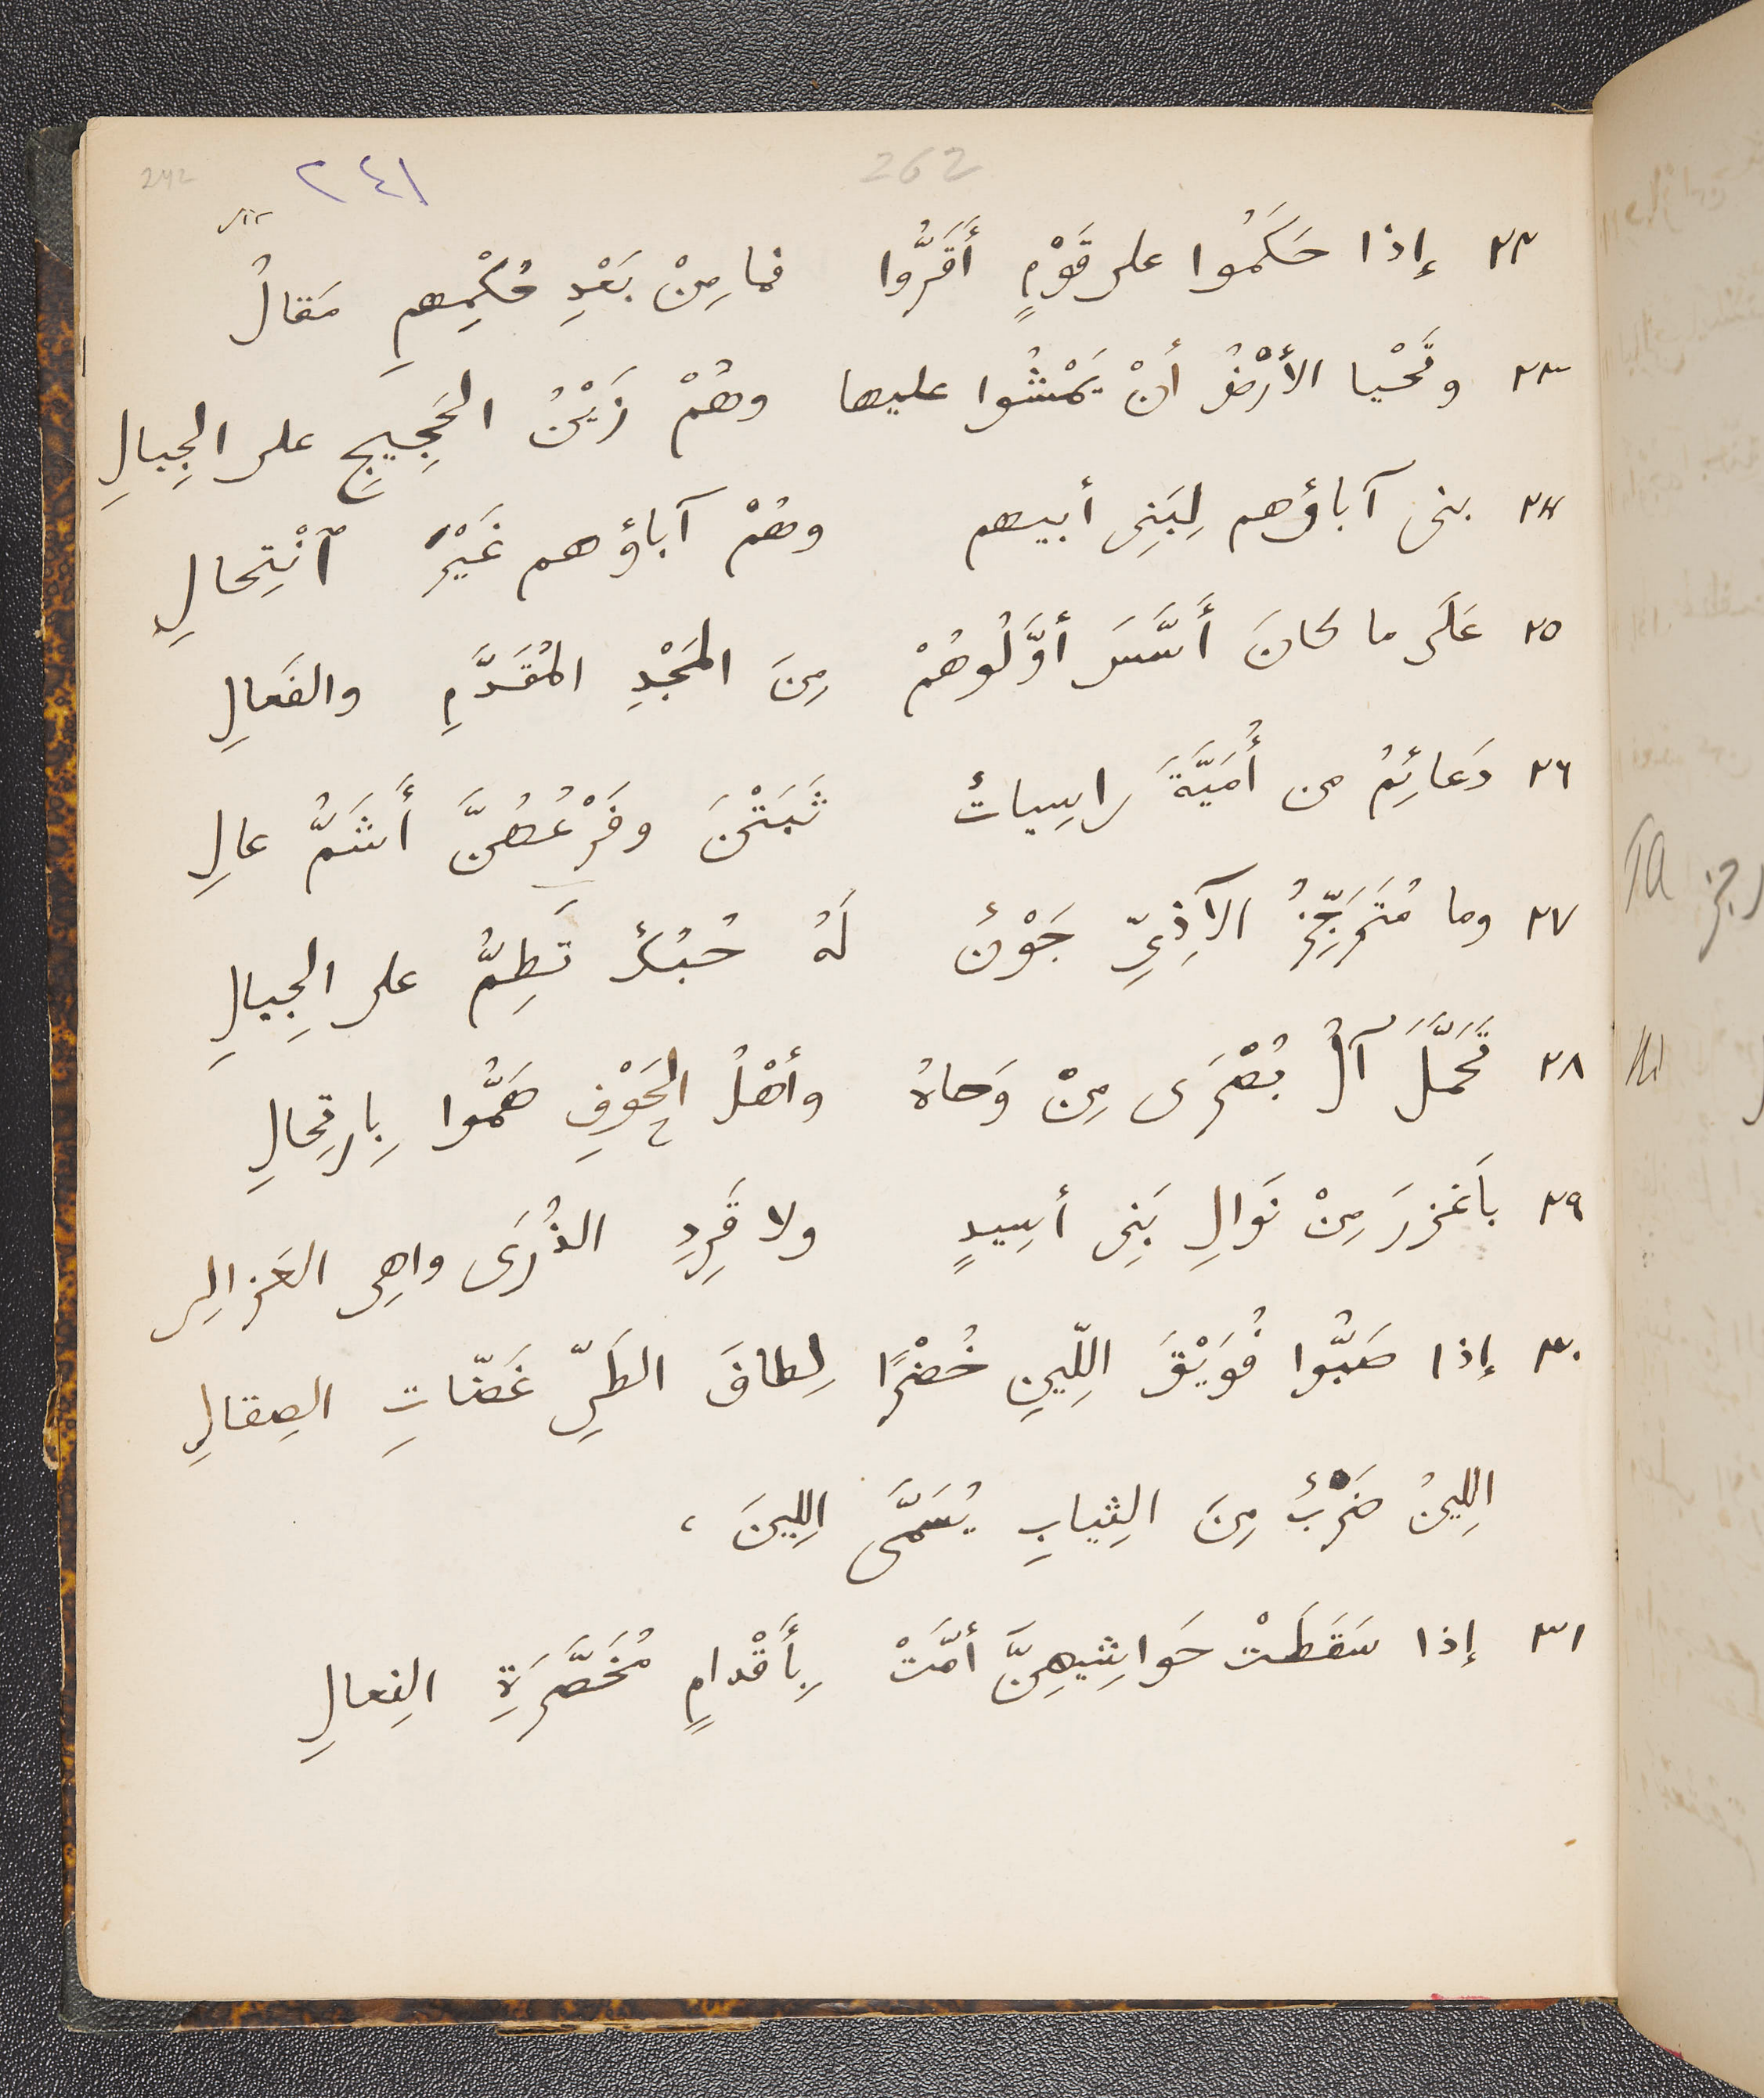 242 ٢٤١ 262
٢٢ إذا حَكَمُوا على قَوْمٍ أَقَرُّوا فما مِنْ بَعْدِ حُكْمِهِمِ مَقالُ
٢٣ وتَحْيا الأرْضُ أنْ يَمْشُوا عليها وهُمْ زَيْنُ الحَجِيجِ على الجِبالِ
٢٤ بنى آباؤهم لِبَنِى أبيهم وهُمْ آباؤهم غَيْرُ ٱنْتِحالِ
٢٥ عَلَى ما كانَ أَسَّسَ أوَّلُوهُمْ مِنَ المَجْدِ المُقَدَّمِ والفَعالِ
٢٦ دَعائِمُ من أُمَيَّةَ راسِياتٌ ثَبَتْنَ وفَرْعُهُنَّ أَشَمُّ عالِ
٢٧ وما مُتَرَجِّزُ الآذِىِّ جَوْنٌ لَهُ حُبُكٌ تَطِمُّ على الجِبالِ
٢٨ تَحَمَّلَ آلُ بُصْرَى مِنْ وَحاهُ وأهْلُ الجَوْفِ هَمُّوا بِارتِحالِ
٢٩ بأَغزرَ مِنْ نَوَالِ بَنِى أسِيدٍ ولا قَرِدِ الذُرَى واهِى العَزالِى
٣٠ إذا صَبُّوا فُوَيْقَ اللِّينِ خُضْرًا لِطافَ الطَىِّ غَضّاتِ الصِقالِ
اللِينُ ضَرْبٌ مِنَ الثِيابِ يُسَمَّى اللِينَ ،
٣١ إذا سَقَطَتْ حَوَاشِيهِنَّ أمَّتْ بِأَقْدامٍ مُخَصَّرَةِ النِعالِ